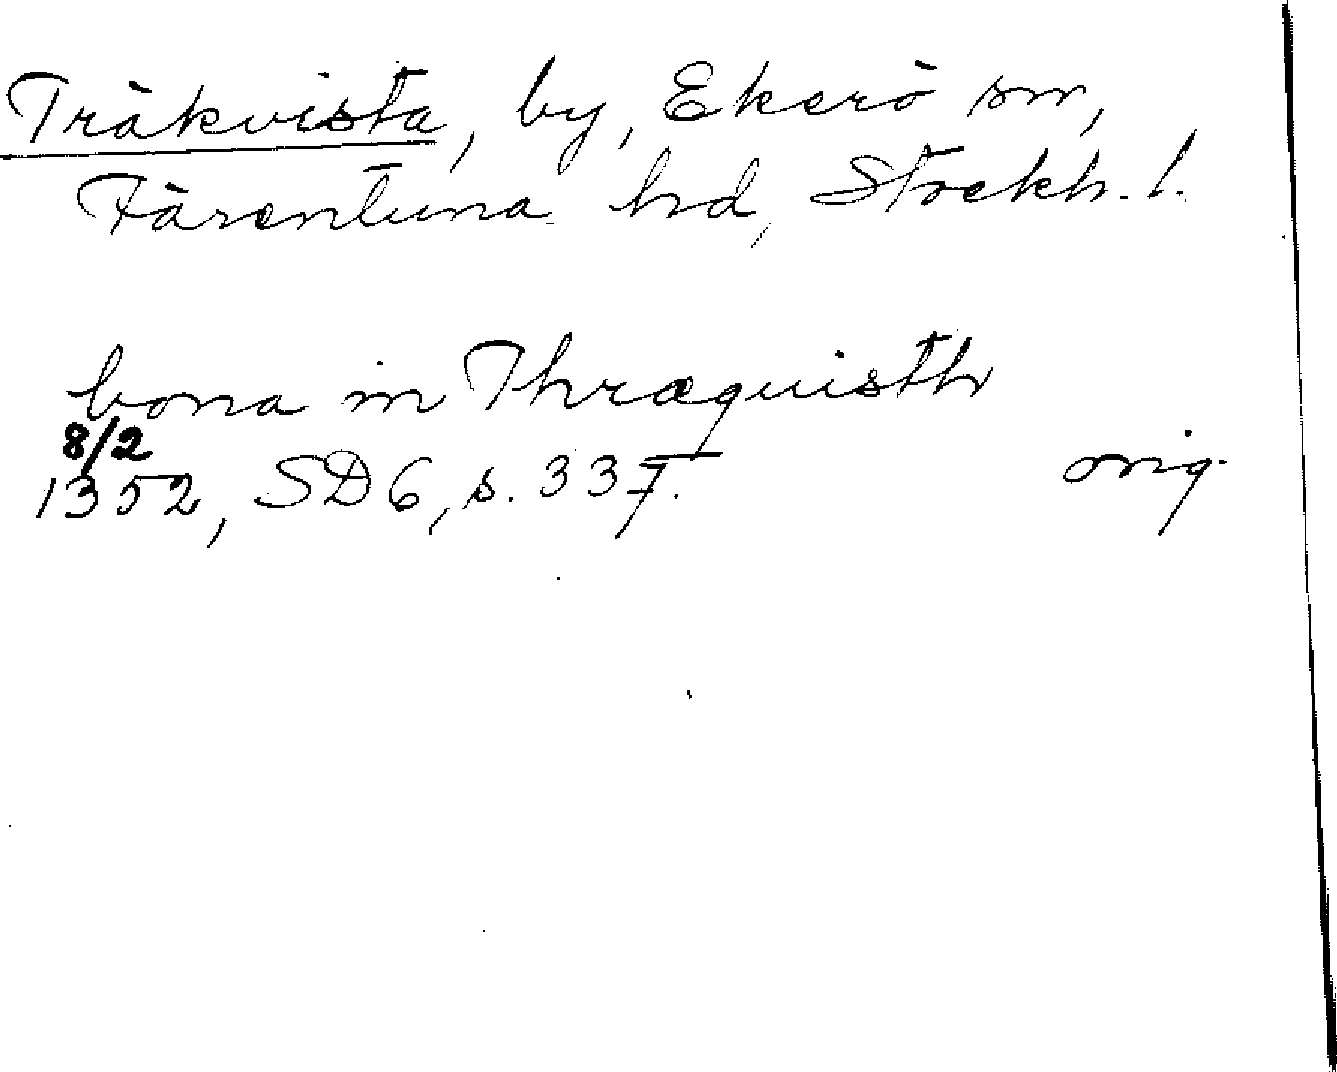 Träkvista, by, Ekerö sn,
Färentuna hd, Stockh. l.
bona in Thræquisth
8/2
1352, SD 6, s. 337. orig.